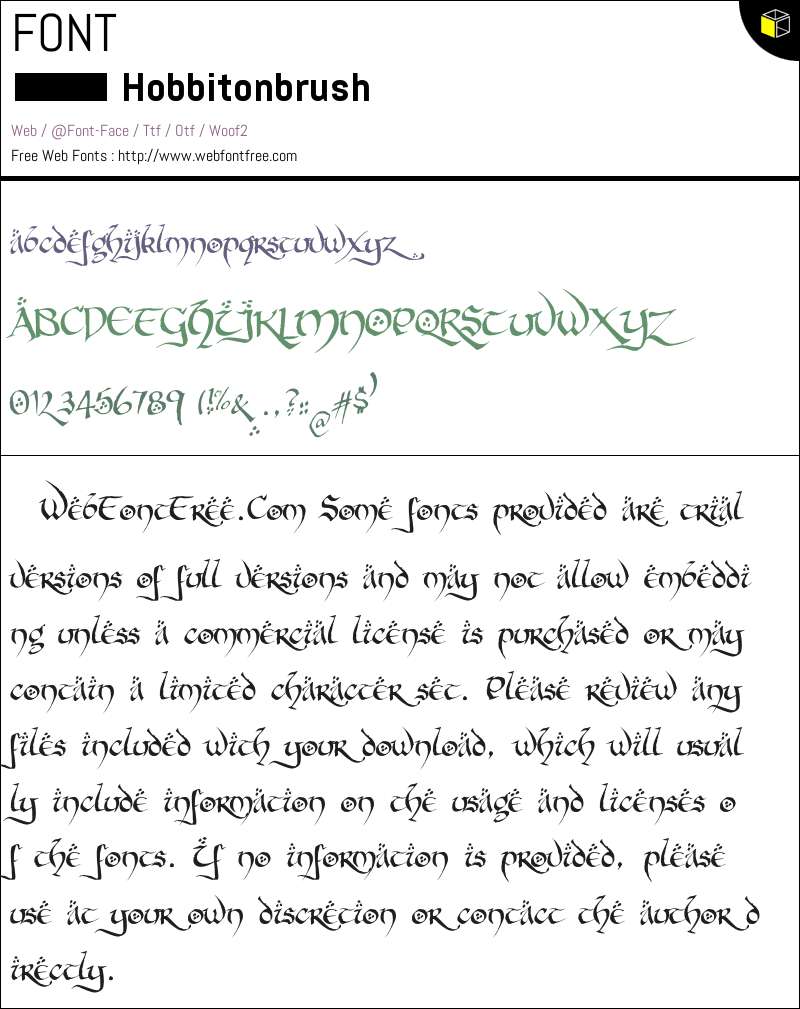 FONT
Hobbitonbrush
Web / @Font-Face / Ttf / Otf / Woof2
Free Web Fonts : http://www.webfontfree.com
abcdefghijklmnopqrstuvwxyz
ABCDEFGHIJKLMNOPQRSTUVWXYZ
0123456789 (!%& .,?::@#$)
WebFontFree.Com Some fonts provided are trial
versions of full versions and may not allow embeddi
ng unless a commercial license is purchased or may
contain a limited character set. Please review any
files included with your download, which will usual
ly include information on the usage and licenses o
f the fonts. If no information is provided, please
use at your own discretion or contact the author d
irectly.